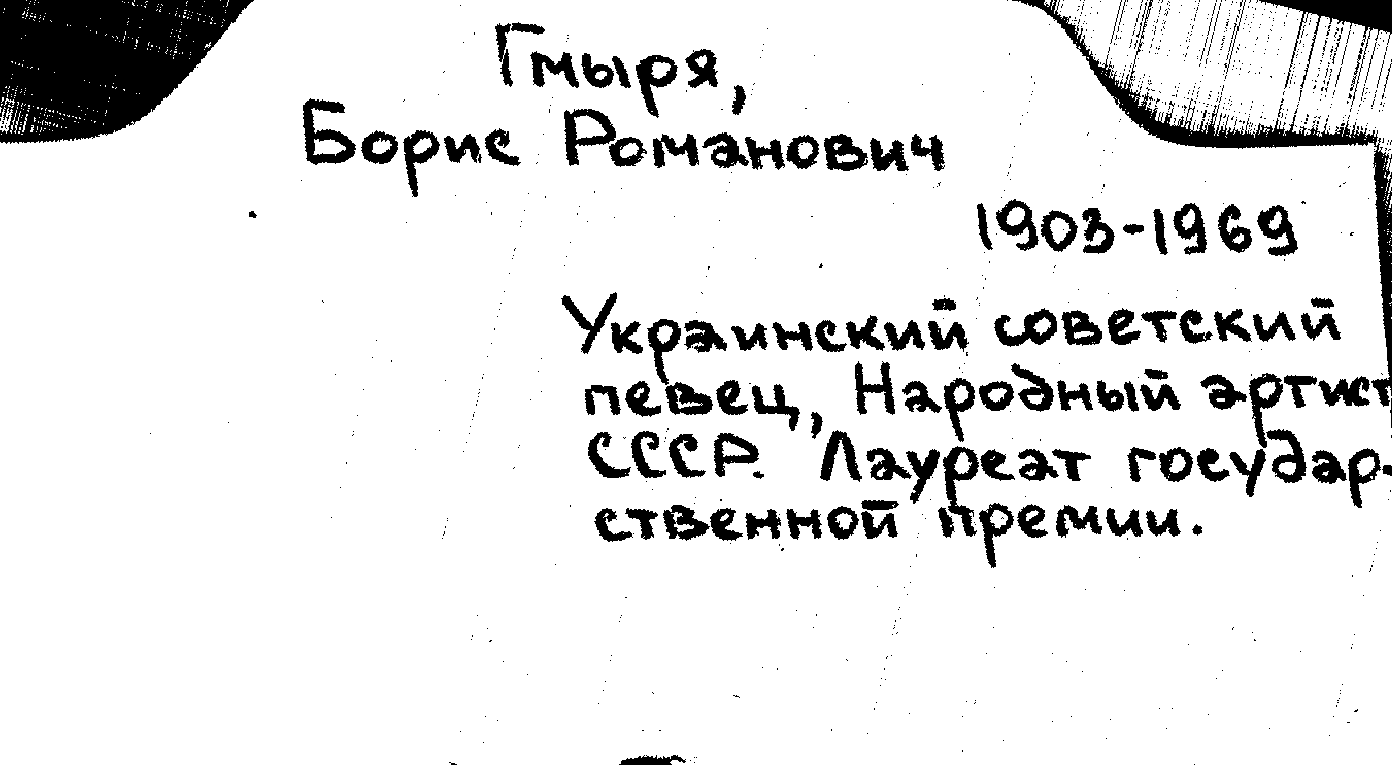 Гмыря,
Борис Романович
1903-1969
Украинский советский
певец, Народный артист
СССР. Лауреат государ-
ственной премии.